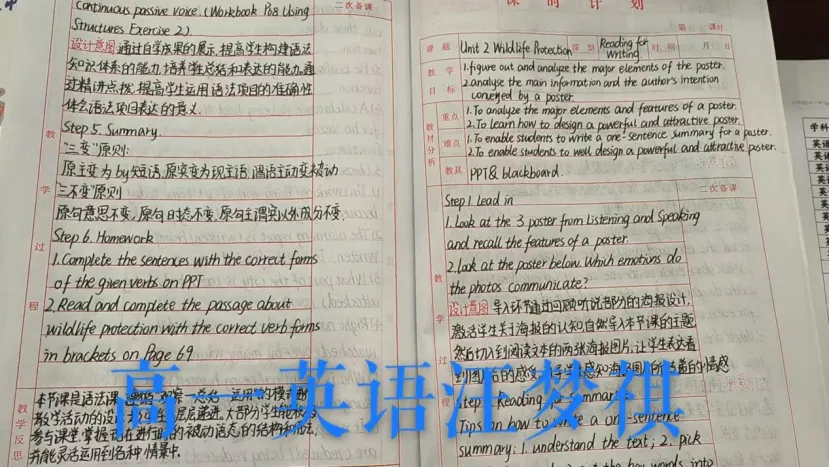 continuous passive voice. (Workbook P68 Using
Structures Exercise 2)
二次备课
设计意图 通过自学成果的展示,提高学生构建语法
知识体系的能力,培养学生总结和表达的能力,通
过精讲点拨,提高学生运用语法项目的准确性
体会语法项目表达的意义.
Step 5. Summary.
"三变"原则:
原主变为by短语,原宾变为现主语,谓语主动变被动
"三不变"原则
原句意思不变,原句时态不变,原句主谓宾以外成分不变
Step 6. Homework
1. Complete the sentences with the correct forms
of the given verbs on PPT
2. Read and complete the passage about
wildlife protection with the correct verb forms
in brackets on Page 69
教学过程
教学反思
本节课是语法课
教学活动的设 层层递进,大部分学生能
参与课堂,掌握 在进行时的被动语态的结构和用法,
并能灵活运用到各种情景中.
课时计划
第 课时
课题 Unit 2 Wildlife Protection 课型 Reading for Writing 时间 月 日
教学目标
1. figure out and analyze the major elements of the poster.
2. analyse the main information and the author's intention
conveyed by a poster.
教材分析
重点 1. To analyze the major elements and features of a poster.
2. To learn how to design a powerful and attractive poster.
难点 1. To enable students to write a one-sentence summary for a poster.
2. To enable students to well design a powerful and attractive poster.
教具 PPT & blackboard.
二次备课
Step 1 Lead in
1. Look at the 3 poster from Listening and Speaking
and recall the features of a poster.
2. Look at the poster below. Which emotions do
the photos communicate?
设计意图 导入环节通过回顾听说部分的海报设计,
激活学生关于海报的认知,自然导入本节课的主题
然后切入到阅读文本的两张海报图片,让学生表达看
到图 后的感受 海报图片所 的情感
Step Reading Summar
Tips on how to write a one-sentence
summary: 1. understand the text; 2. pick
the key words into
教学过程
学科
英语
英语
英语
英语
英语
英语
英语
英语
高一英语汪梦祺